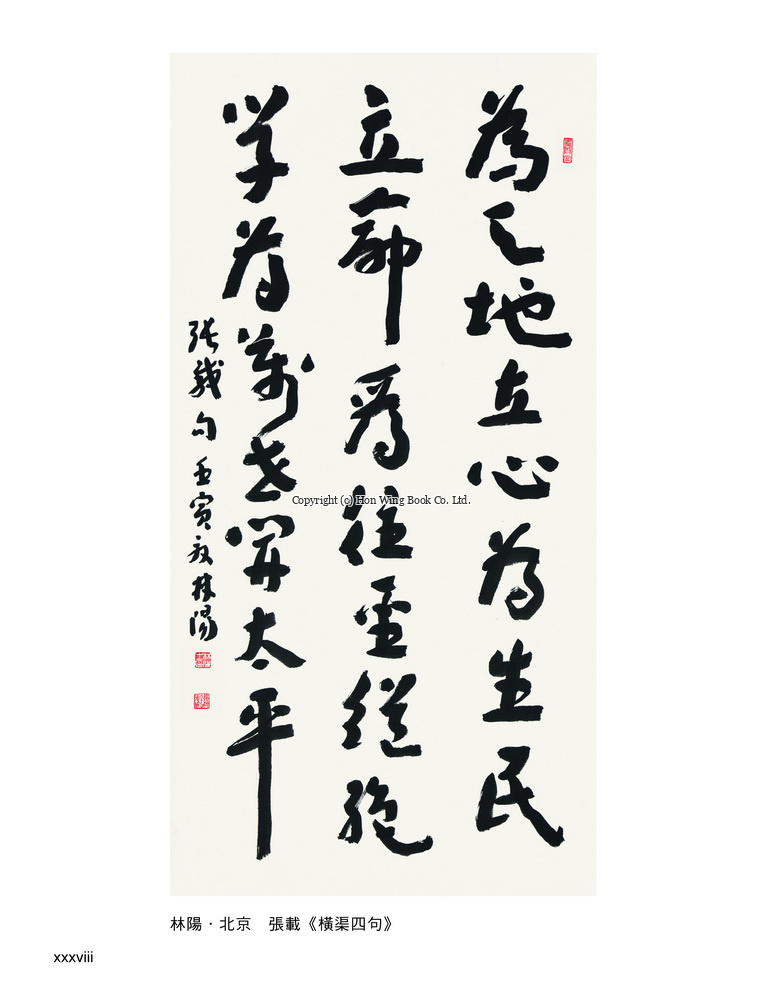 為天地立心為生民
立命為往聖繼絕
学為萬世開太平
張載句壬寅夜林陽
Copyright (c) Hon Wing Book Co. Ltd.
林陽·北京　張載《橫渠四句》
xxxviii